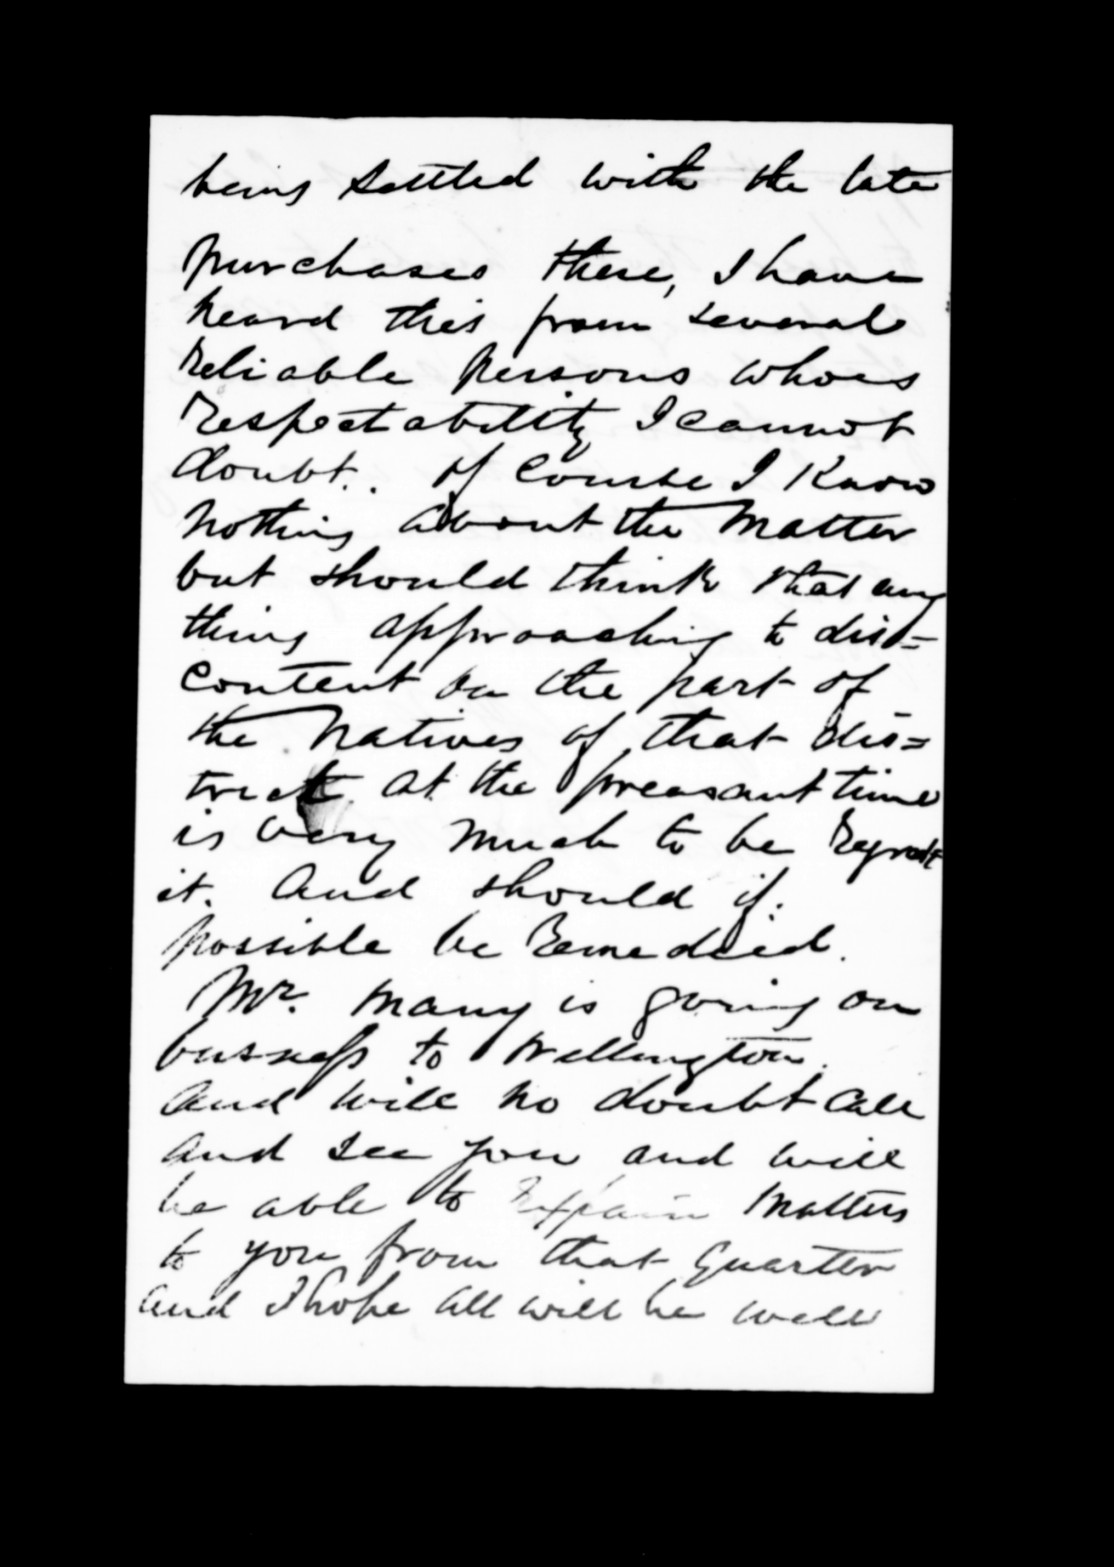 being settled with the late
purchases there, I have
heard this from several
reliable persons whoes
respectability I cannot
doubt. of course I know
nothing about the matter
but should think that any
thing approaching to dis=
content on the part of
the natives of that dis=
trict at the preasant time
is very much to be regrett
it. And should if
possible be remedied.
Mr. Many is going on
business to Wellington.
and will no doubt call
and see you and will
be able to explain matters
to you from that quarter
and I hope all will be well